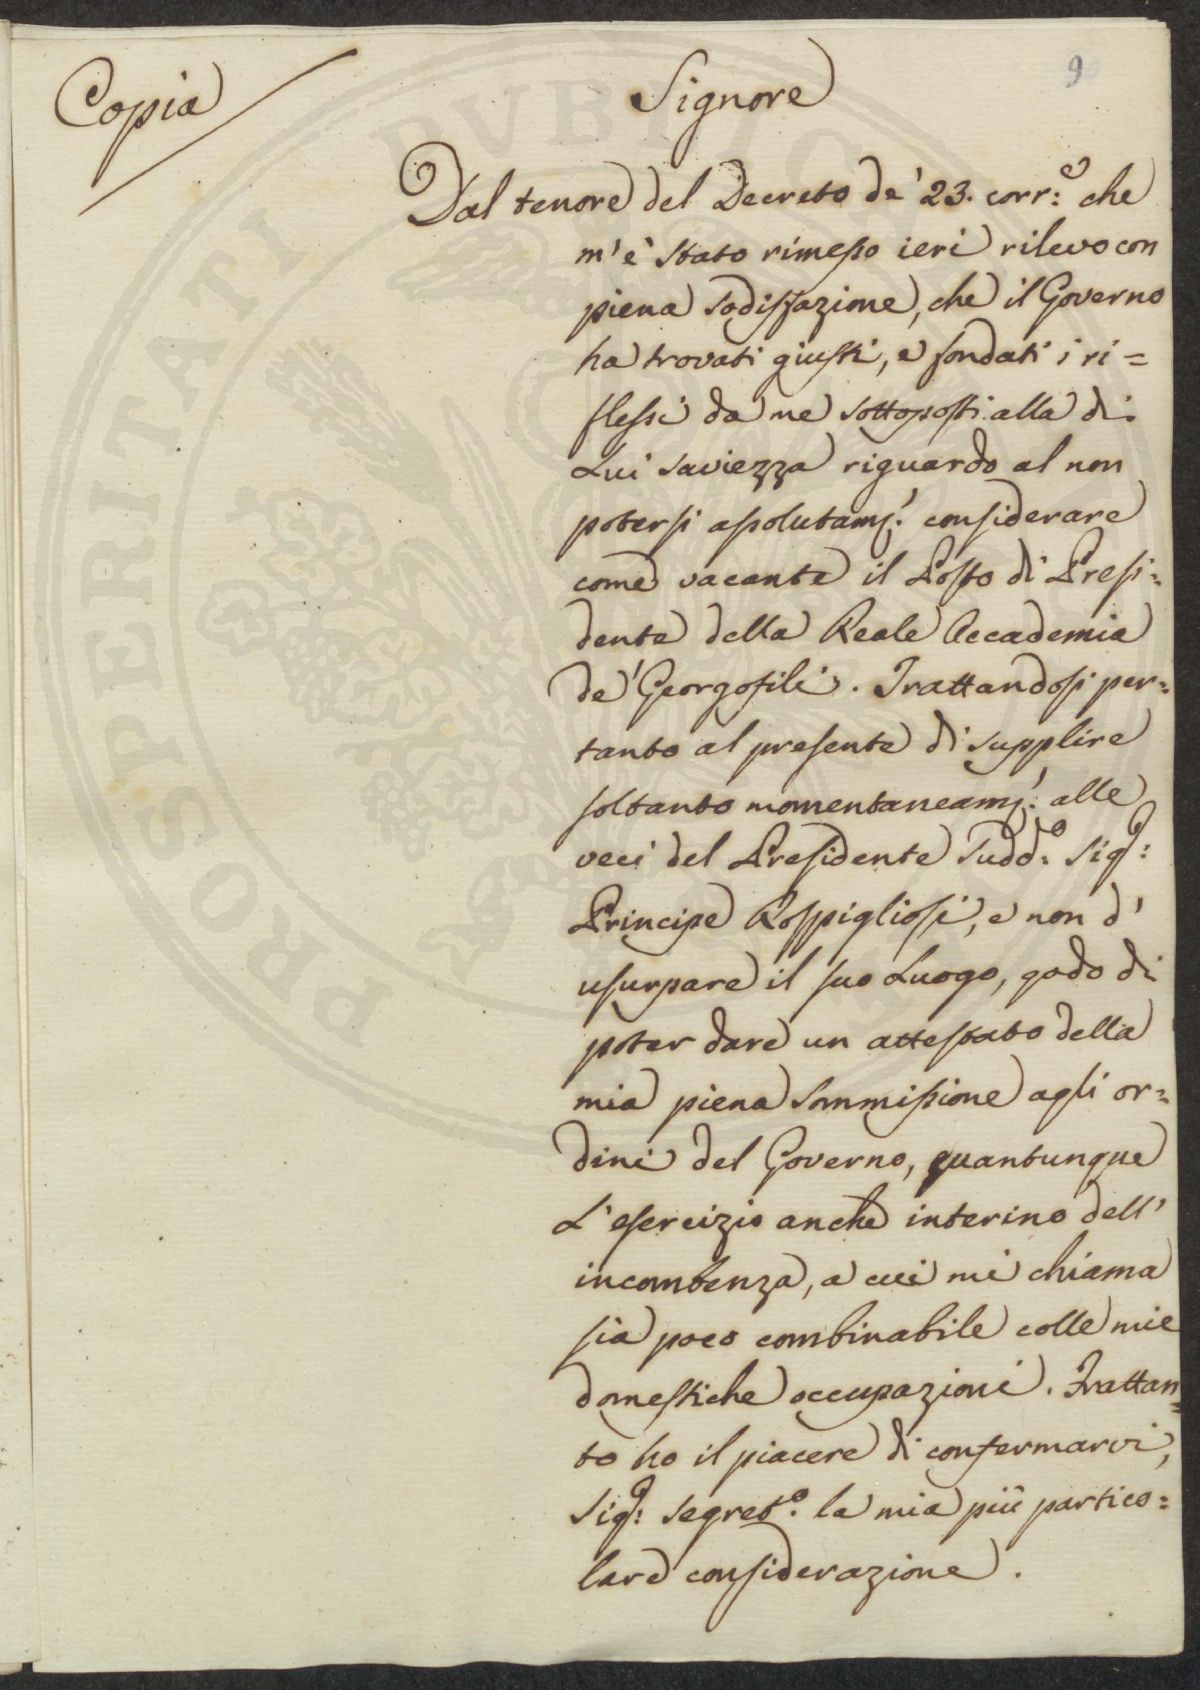 9
Copia
Signore
Dal tenore del Decreto de' 23. corr:e che
m'è stato rimesso ieri rilevo con
piena sodisfazione, che il Governo
ha trovati giusti, e fondati i ri=
flessi da me sottoposti alla di
Lui saviezza riguardo al non
potersi assolutamt.' considerare
come vacante il Posto di Presi=
dente della Reale Accademia
de' Georgofili. Trattandosi per=
tanto al presente di supplire
soltanto momentaneamt.' alle
veci del Presidente Sudd:o Sigr:
Principe Rospigliosi, e non d'
usurpare il suo Luogo, godo di
poter dare un attestato della
mia piena sommissione agli or=
dini del Governo, quantunque
L'esercizio anche interino dell'
incombenza, a cui mi chiama
sia poco combinabile colle mie
domestiche occupazioni. Trattan=
to ho il piacere di confermarvi,
Sigr: Segret.o la mia più partico=
lare considerazione.
PROSPERITATI PVBLIC